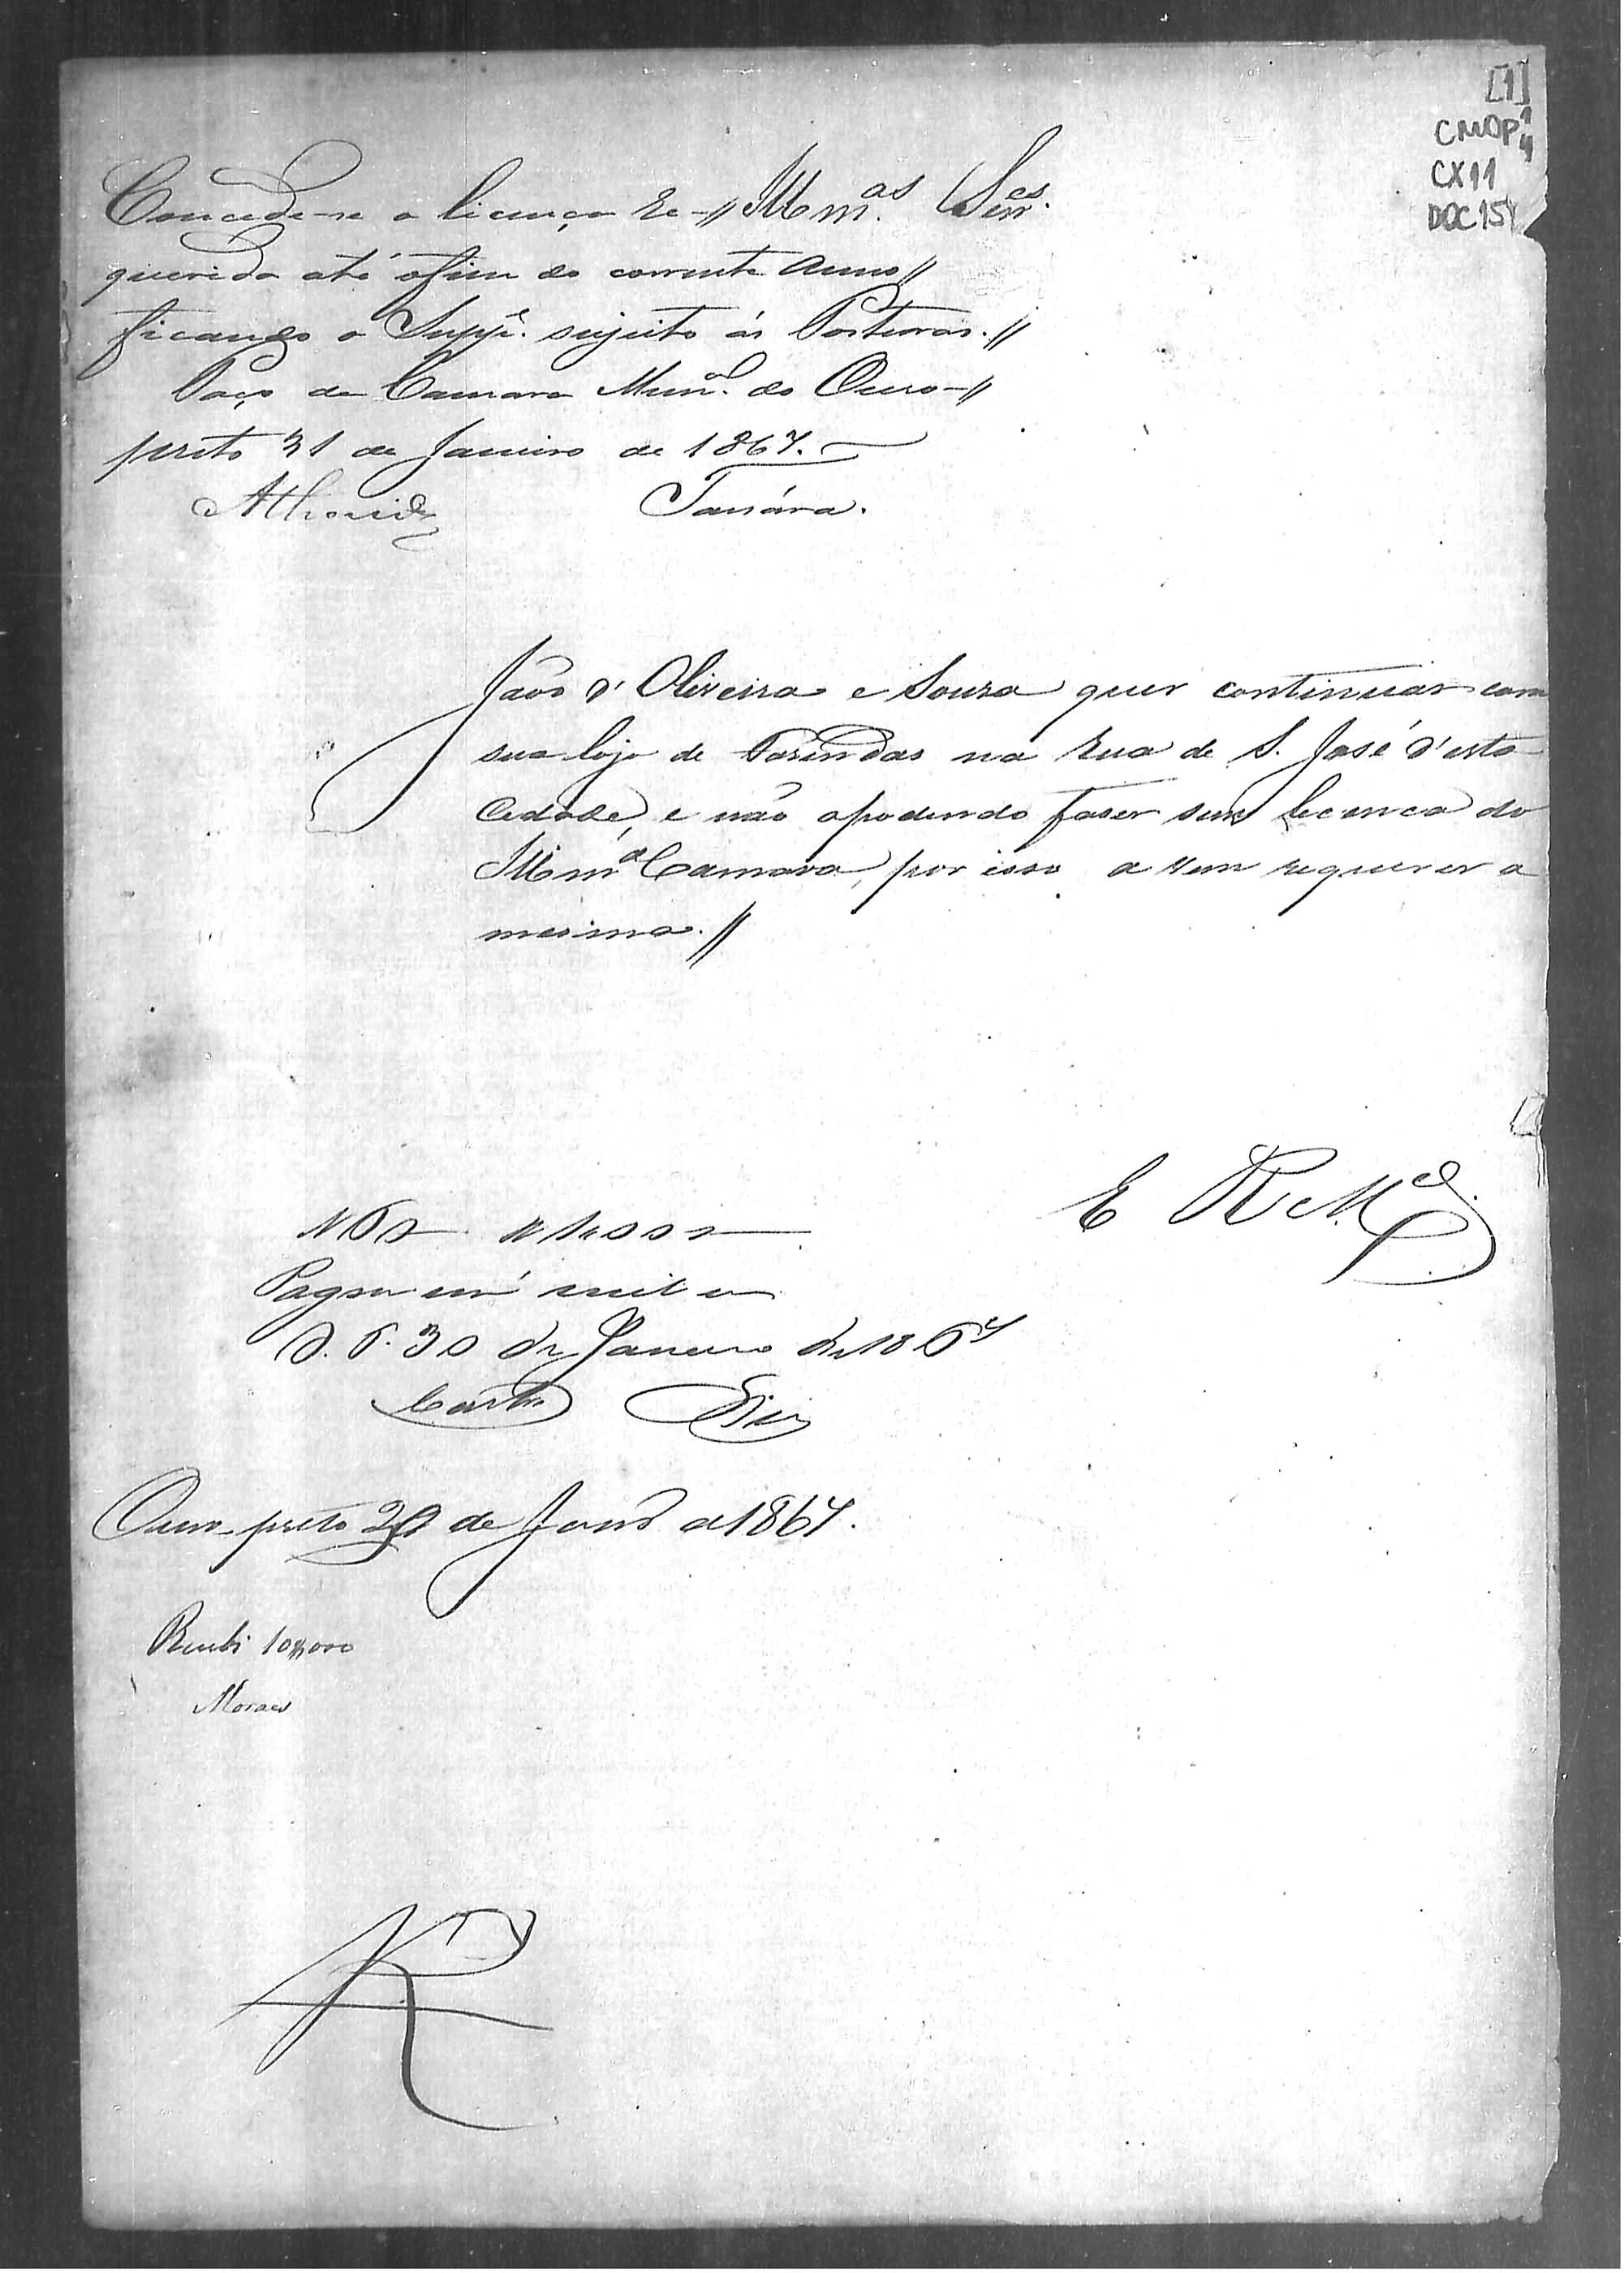 [1]
CMOP
CX11
DOC15
Concede-se a licença re-// Illmas. Senres.
querida até o fim do corrente anno//
ficando o Suppe. sujeito ás Posturas.//
Paço da Camara Munal. do Ouro-//
preto 31 de Janeiro de 1867.
Almeida
João d'Oliveira e Souza quer continuar com
sua loja de Fasendas na rua de S. José d'esta
Cidade, e não o podendo faser sem lecenca da
Illmª Camara, por isso a vem requerer a
mesma.//
E R Mce.
1$000
Pagou um mil
O. P. 30 de Janeiro de 1867
Ouro-preto 29 de Janro de 1867.
Recebi 10$000
Moraes